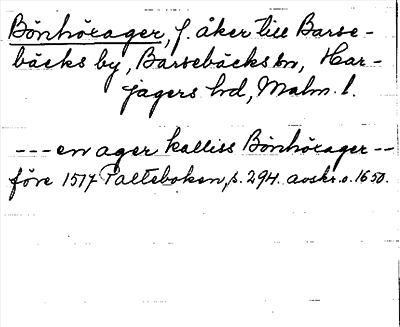 Bönhörager, f. åker till Barse-
bäcks by, Barsebäcks sn, Har-
jagers hd, Malm. l.
--- en ager kalliss Bönhörager --
före 1517 Palteboken, s. 294. avskr. o. 1650.